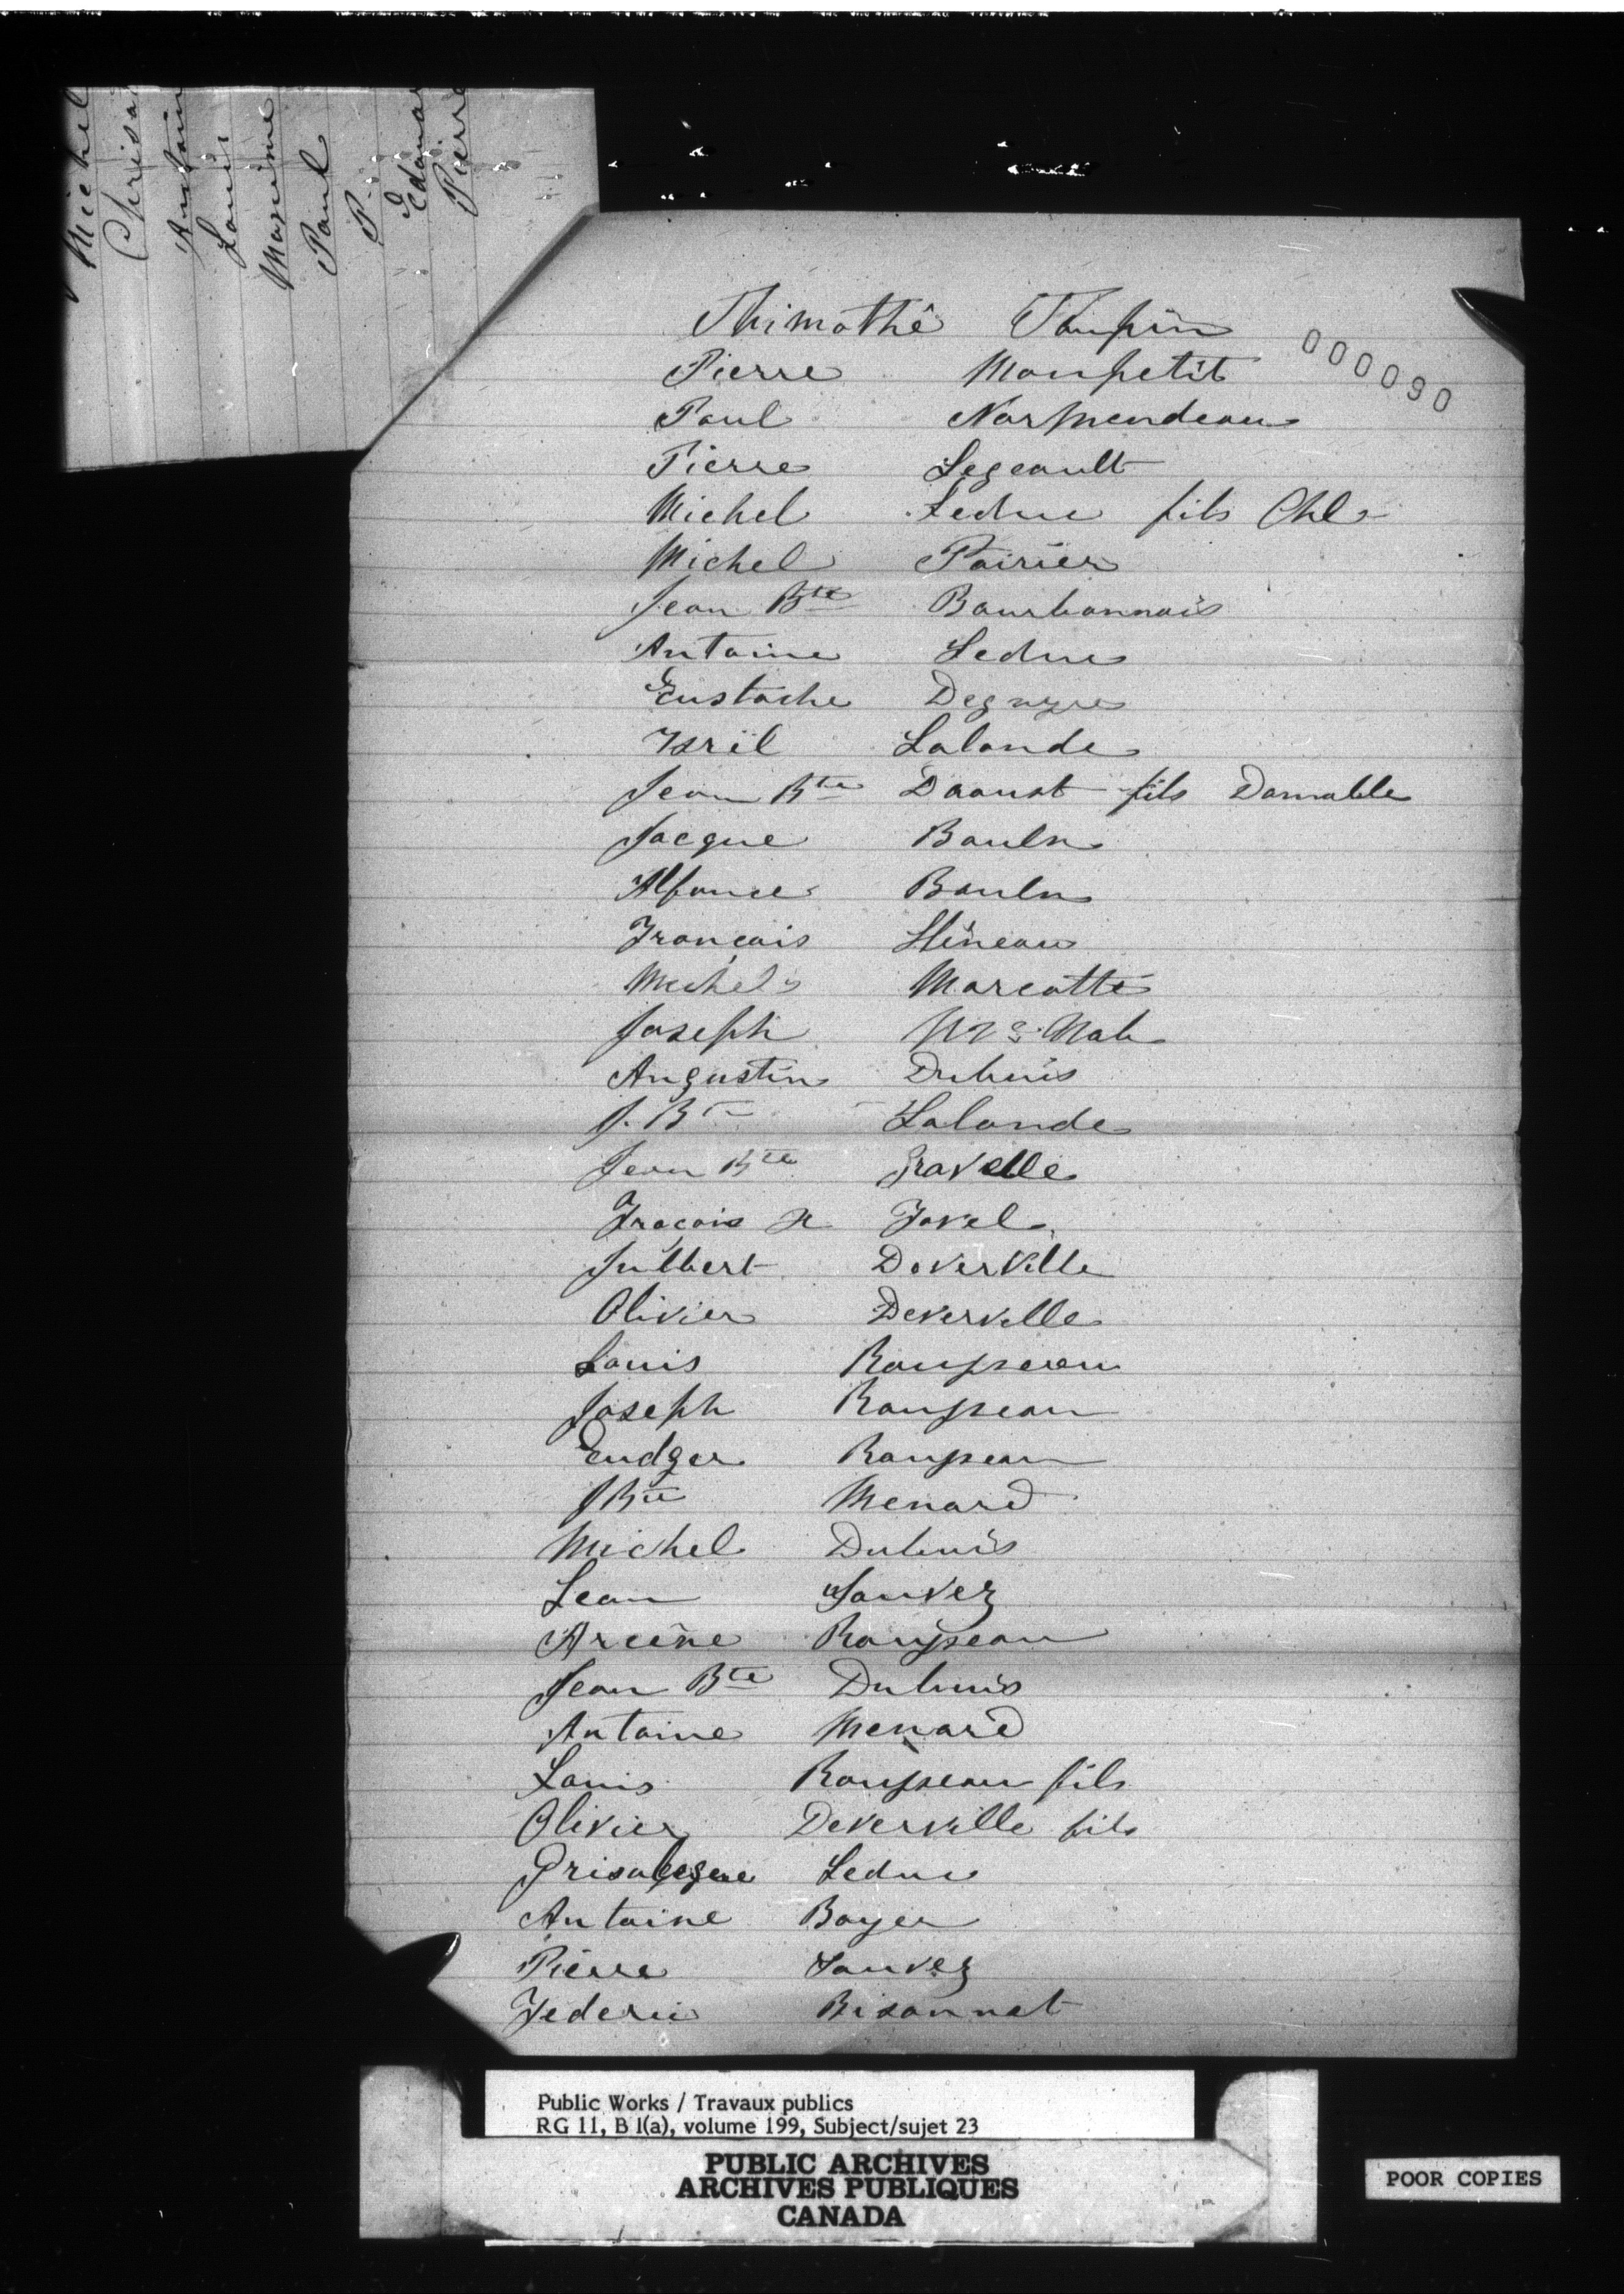 Michel
Chrisa
Antoin
Louis
Maxime
Paul
P.
Edouar
Pierre
000090
Thimothê Taupin
Pierre Monpetit
Paul Normendeau
Pierre Legeault
Michel Leduc fils Chl
Michel Poirier
Jean Bte Bourbonnais
Antoine Leduc
Eustache Deguyre
Isrïl Lalonde
Jean Bte Daoust fils Damable
Jacque
Alfonce
François Hêneau
Michel Marcotte
Joseph Mc Nab
Augustin Dubuis
J. Bte Lalonde
Jean Bte Gravelle
Fracois X Favel
Julbert Deverville
Olivier Deverville
Louis Rousseau
Joseph Rousseau
Eudger Rousseau
J Bte Menard
Michel Dubuis
Leon Sauvez
Arcène Rousseau
Jean Bte Dubuis
Antoine Menard
Louis Rousseau fils
Olivier Deverville fils
Leduc
Antoine Boyer
Pierre Sauvez
Federic Bisonnet
Public Works / Travaux publics
RG 11, B 1(a), volume 199, Subject/sujet 23
PUBLIC ARCHIVES
ARCHIVES PUBLIQUES
CANADA
POOR COPIES